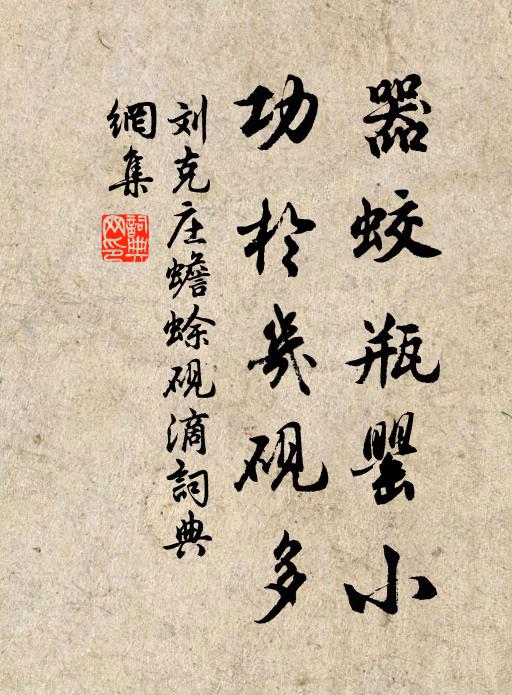 器蛟瓶罌小
功於幾硯多
刘克庄蟾蜍砚滴詞典
網集
詞典
网印